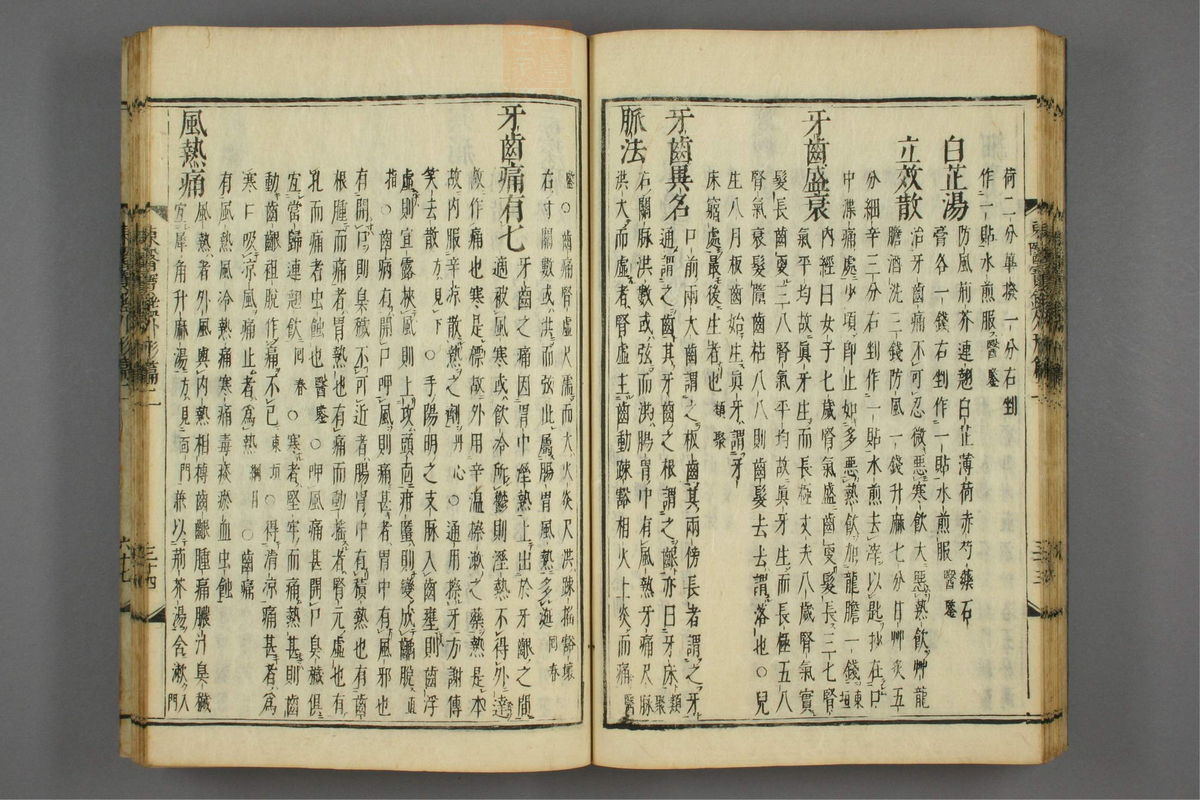 荷二分蓽撥一分右剉
作一貼水煎服醫鑒
白芷湯
防風荊芥連翹白芷薄荷赤芍藥石
膏各一錢右剉作一貼水煎服醫鑒
立效散
治牙齒痛不可忍微惡寒飲大惡熱飲艸龍
膽酒洗三錢防風一錢升麻七分甘艸炙五
分細辛三分右剉作一貼水煎去滓以匙抄在口
中渫痛處少頃卽止如多惡熱飲加龍膽一錢東垣
牙齒盛衰
內經曰女子七歲腎氣盛齒更髮長三七腎
氣平均故眞牙生而長極丈夫八歲腎氣實
髮長齒更三八腎氣平均故眞牙生而長極五八
腎氣衰髮墮齒枯八八則齒髮去去謂落也○兒
生八月板齒始生眞牙謂牙
床窮處最後生者也類聚
牙齒異名
口前兩大齒謂之板齒其兩傍長者謂之牙
通謂之齒其牙齒之根謂之齦亦曰牙床類聚
脈法
右關脈洪數或弦而洪膓胃中有風熱牙痛尺脈
洪大而虛者腎虛主齒動踈豁相火上炎而痛醫
鑒○齒痛腎虛尺濡而大火炎尺洪踈搖豁壞
右寸關數或洪而弦此屬膓胃風熱多涎回春
牙齒痛有七
牙齒之痛因胃中濕熱上出於牙齦之間
適被風寒或飲冷所鬱則濕熱不得外達
故作痛也寒是標故外用辛溫擦漱之藥熱是本
故內服辛凉散熱之劑丹心○通用擦牙方謝傳
笑去散方見下○手陽明之支脈入齒壅則齒浮
虛則宣露挾風則上攻頭面疳䘌則變成齲脫直
指○齒病有開口呷風則痛甚者胃中有風邪也
有開口則臭穢不可近者膓胃中有積熱也有齒
根腫而痛者胃熱也有痛而動搖者腎元虛也有
乳而痛者虫蝕也醫鑒○呷風痛甚開口臭穢俱
宜當歸連翹飲回春○寒者堅牢而痛熱甚則齒
動齒齦袒脫作痛不已東垣○得淸凉痛甚者爲
寒口吸凉風痛止者爲熱綱目○齒痛
有風熱風冷熱痛寒痛毒痰瘀血虫蝕
風熱痛
風熱者外風與內熱相搏齒齦腫痛膿汁臭穢
宜犀角升麻湯方見面門兼以荊芥湯含漱入門
東醫寶鑑外形篇二
三十四
三十三